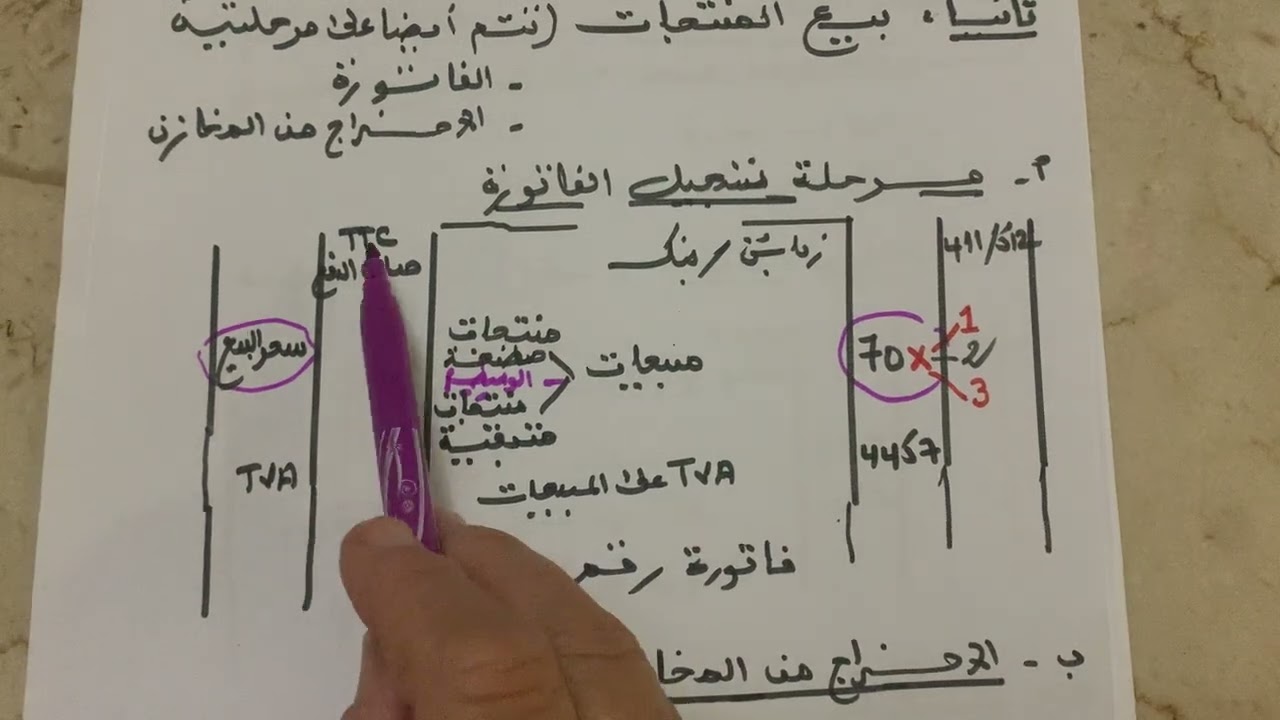 ثانيا، بيع المنتجات (تتم أيضا على مرحلتين
- الفاتورة
- الاخراج من المخازن
أ- مرحلة تسجيل الفاتورة
411/512
زبائن / بنك
TTC
70x
1
2
3
مبيعات
منتجات
مصنعة
- الوسيطية
منتجات
متبقية
سعر البيع
4457
TVA على المبيعات
TVA
فاتورة رقم
ب- الاخراج من